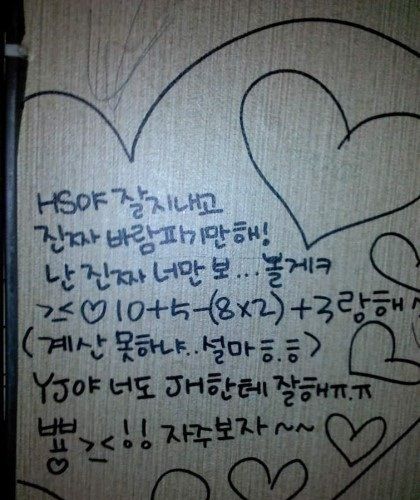 HS야 잘지내고
진짜 바람피기만해!
난 진짜 너만 보...볼게ㅋ
>≤♡10+5-(8×2)+3랑해
(계산 못하냐..설마ㅎ.ㅎ)
YJ야 너도 JH한테 잘해ㅠ.ㅠ
뾰♡>≤!! 자주보자~~